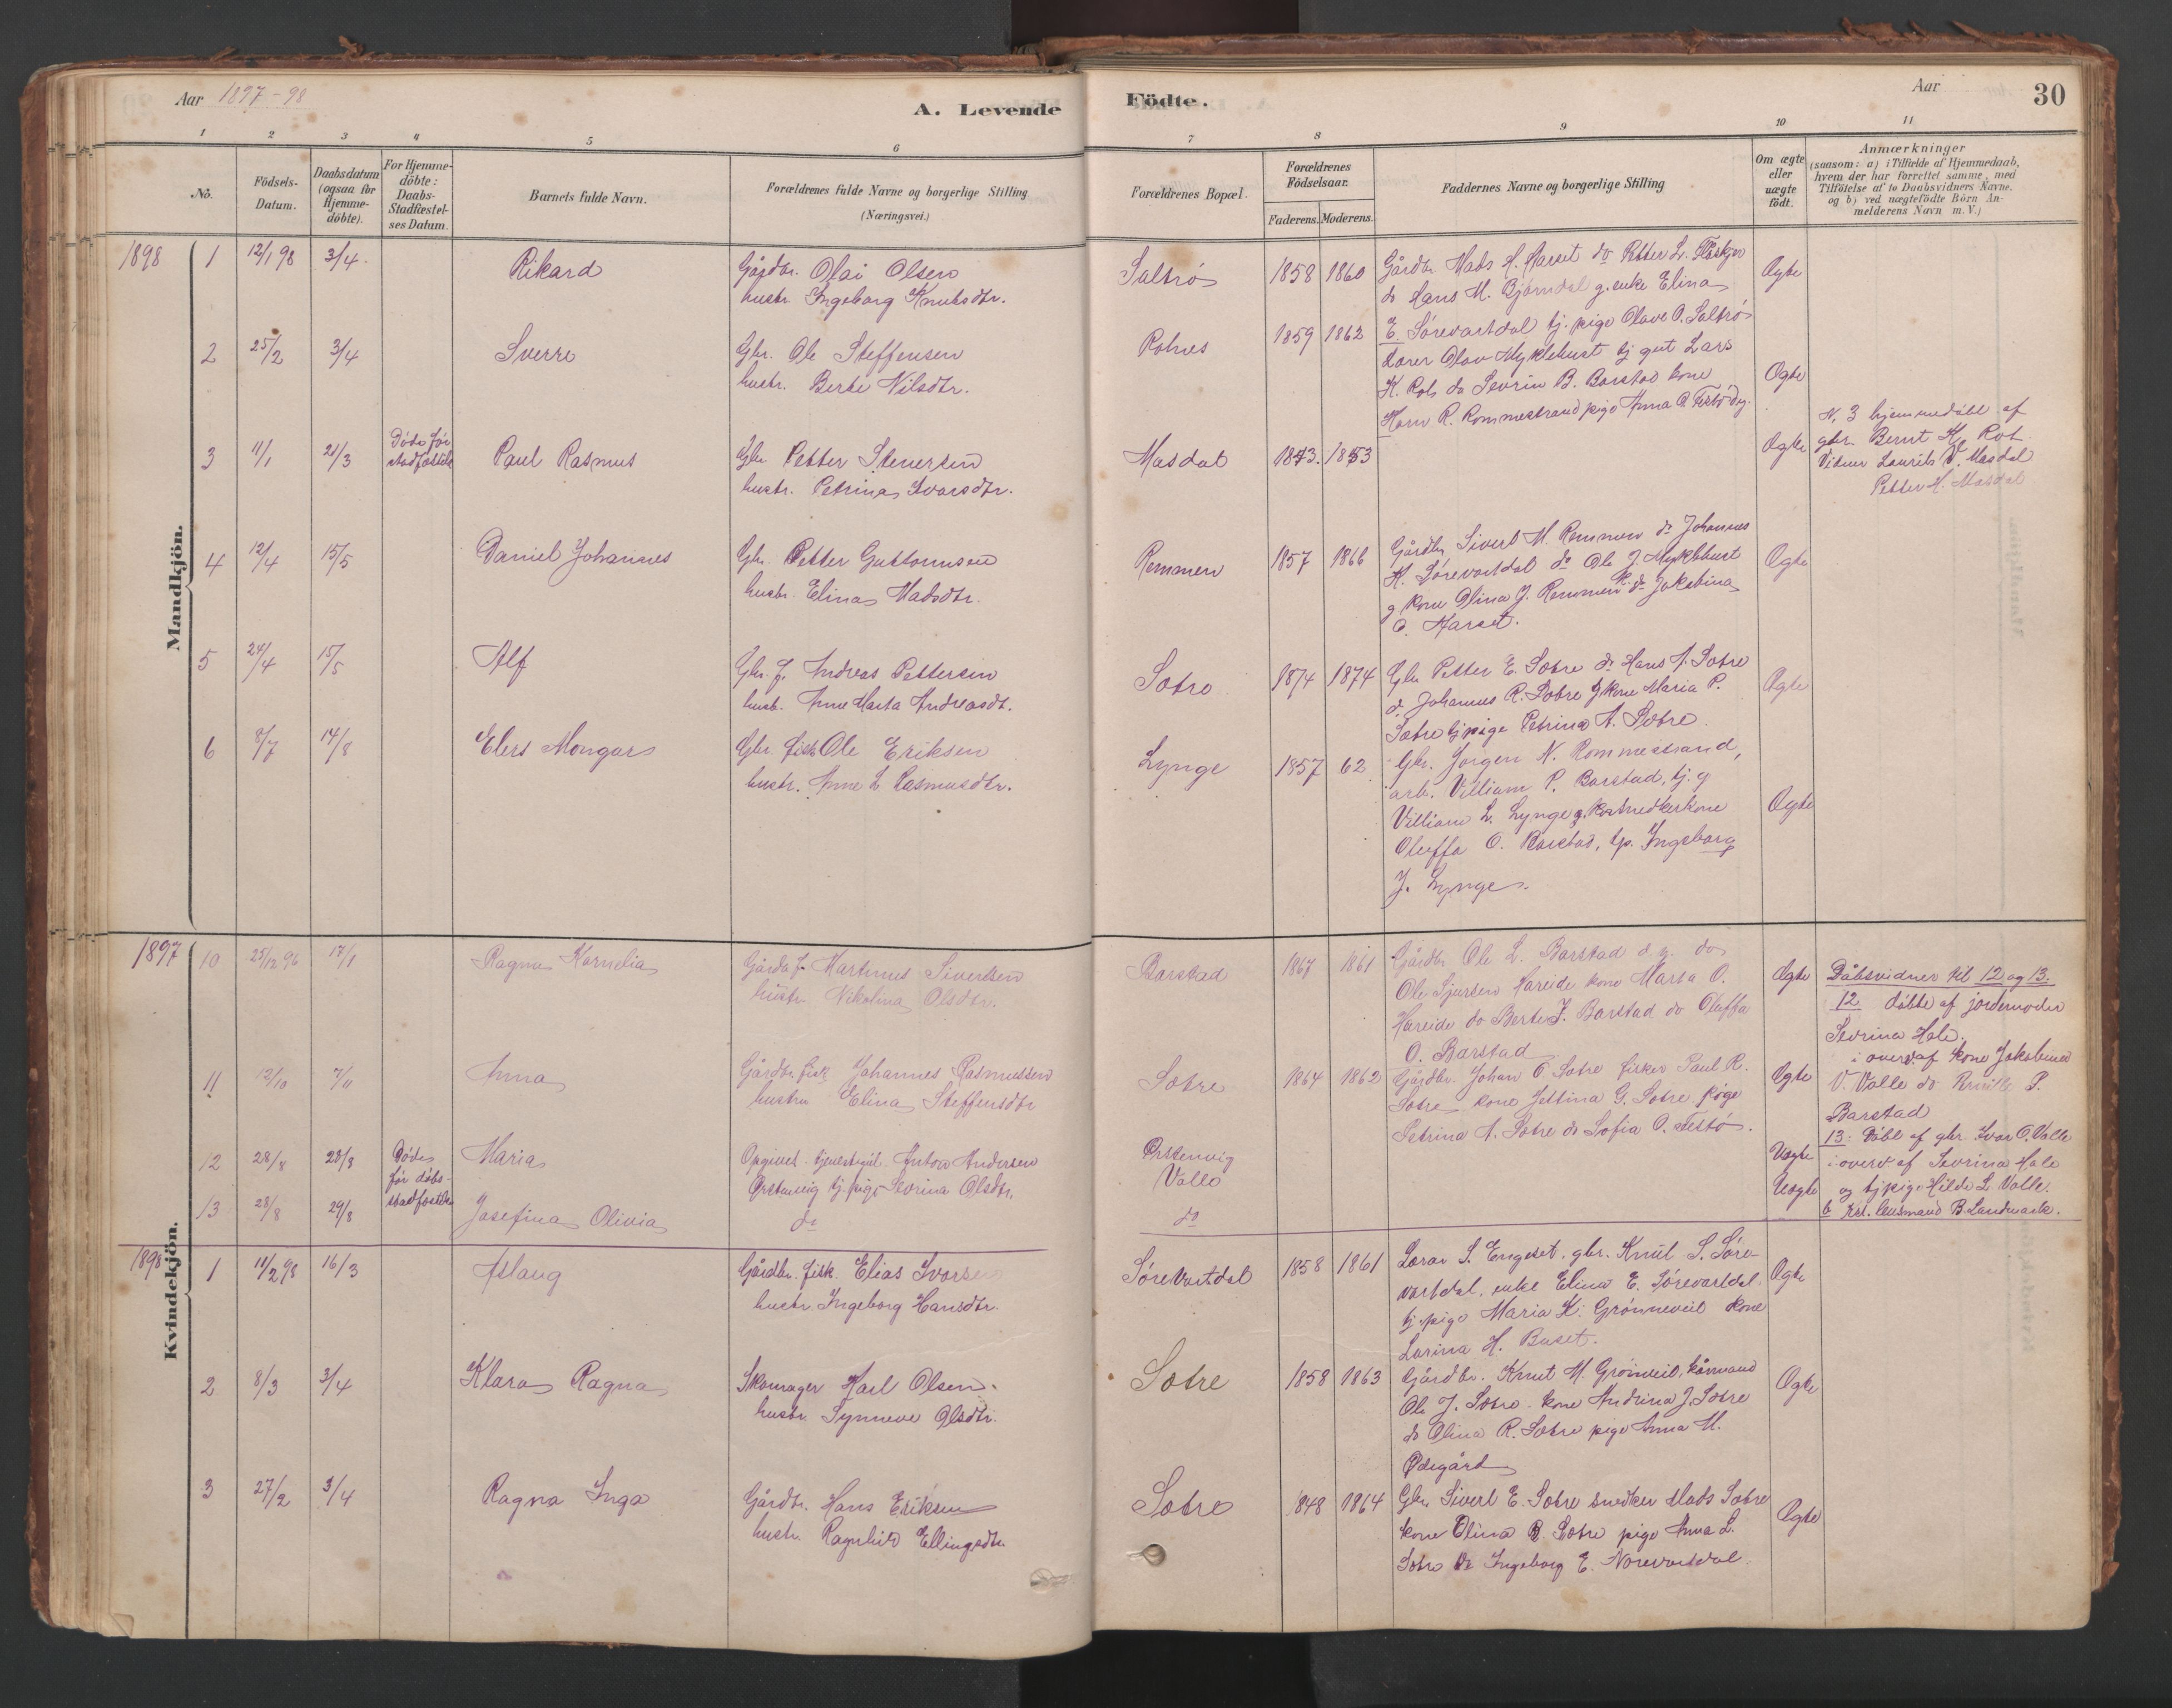 Aar 1897-98
A. Levende
Födte.
Aar
30
1 2 3 4 5 6 7 8 9 10 11
No.
Födsels-
Datum.
Daabsdatum
(ogsaa for
Hjemme-
döbte).
For Hjemme-
döbte:
Daabs-
Stadfæstel-
ses Datum.
Barnets fulde Navn.
Forældrenes fulde Navne og borgerlige Stilling
(Næringsvei.)
Forældrenes Bopæl.
Forældrenes
Födselsaar.
Faderens. Moderens.
Faddernes Navne og borgerlige Stilling
Om ægte
eller
uægte
födt.
Anmærkninger
(saasom: a) i Tilfælde af Hjemmedaab,
hvem der har forrettet samme, med
Tilföielse af to Daabsvidners Navne.
og b) ved uægtefödte Börn An-
melderens Navn m.V.)
Mandkjön.
1898
1 12/1 98 3/4 Rikard
Gårdbr. Olai Olsen
hustr. Ingeborg Knutsdtr.
Saltrö 1858 1860
Gårdbr. Mads H. Marset do Petter L.
do Hans M. Bjørndal g. enke Elina
E. Sörevartdal tj. pige Olave O. Saltrö
Ægte
2 25/2 3/4 Sverre
Gbr. Ole Steffensen
hustr. Berte Nilsdtr.
1859 1862
Lærer Olav Myklebust tj gut Lars
K. Rots do Sevrin B. Barstad kone
R. Rommestrand pige Anna
Ægte
3 11/1 21/3
Döde för
stadfæstelse
Paul Rasmus
Gbr. Petter Stenersen
hustr. Petrina Ivarsdtr.
Masdal 1843. 1853
Ægte
N. 3 hjemmedöbt af
gbr. Bernt K. Rot
Vidner Laurits V. Masdal
Petter H. Masdal
4 12/4 15/5 Daniel Johannes
Gbr. Petter Guttormsen
hustr. Elina Madsdtr.
Remmen 1857 1866
Gårdbr. Sivert M. Remmen do Johannes
H. Sörevartdal do Ole J. Myklebust
g. kone Olina J. Remmen k. do Jakobina
O. Marset.
Ægte
5 24/4 15/5 Alf
Gbr. f. Andreas Pettersen
hustr. Anne Marta Andreasdt.
Sætre 1874 1874
Gbr Petter E. Sætre do Hans A. Sætre
do Johannes R. Sætre g kone Maria P.
Sætre tj pige Petrina A. Sætre.
Ægte
6 8/7 14/8 Elers Mongar
Gbr. fisk Ole Eriksen
hustr. Anne L Rasmusdtr.
Lynge 1857 62
Gbr. Jörgen N. Rommestrand,
arb. Villiam P. Barstad, tj. g
Villiam L. Lynge g.
Oluffa O. Barstad, tp. Ingeborg
J. Lynge.
Ægte
Kvindekjön.
1897
10 25/12 96 17/1 Ragna Kornelia
Gårdb. f. Martinus Sivertsen
hustr. Nikolina Olsdtr.
Barstad 1867 1861
Gårdbr. Ole L. Barstad d. y. do
Ole Sjursen Hareide kone Marta O.
Hareide do Berte J. Barstad do Oluffa
O. Barstad
Ægte
Dåbsvidner til 12 og 13.
12 döbte af jordemoder
Sevrina Hole.
i overv. af kone Jakobine
V. Valle do P.
Barstad
11 12/10 7/11 Anna
Gårdbr. fisk Johannes Rasmussen
hustru Elina Steffensdtr
Sætre 1864 1862
Gårdbr. Johan O Sætre fisker Paul R.
Sætre kone Jettina G. Sætre pige
Petrina A. Sætre do Sofia O. Festö.
Ægte
12 28/8 28/8
Döde
för dåbs-
stadfæstelse
Maria
Opgivet. tjenestegut Anton Andersen
Ørstenvig tj. pige Sevrina Olsdtr.
Ørstenvig
Valle
Uægte
13: Döbt af gbr. Ivar O. Valle
i overv af Sevrina Hole
og tjpige Hilde L. Valle.
b Kst. lensmand B. Landmark.
13 28/8 29/8 Josefina Olivia
do
do
Uægte
1898
1 11/2 98 16/3 Aslaug
Gårdbr. fisk. Elias Ivarsen
hustr. Ingeborg Hansdtr.
Sörevartdal 1858 1861
Lærer S. Engeset. gbr. Knut S. Söre-
vartdal, enke Elina E. Sörevartdal.
tj. pige Maria K. Grönneveit kone
Larina H. Buset.
Ægte
2 8/3 3/4 Klara Ragna
Skomager Karl Olsen.
hustr. Synneve Olsdtr.
Sætre 1858 1863
Gårdbr. Knut M. Gröneveit, kårmand
Ole J. Sætre. kone Andrina J. Sætre
do Olina R. Sætre pige Anna M.
Ødegård
Ægte
3 27/2 3/4 Ragna Inga
Gårdbr. Hans Eriksen
hustr. Ragnhild Ellingsdtr.
Sætre 1848 1864
Gbr Sivert E. Sætre snedker Mads Sætre
kone Olina R. Sætre pige Anna L.
Sætre do Ingeborg E. Norevartdal.
Ægte